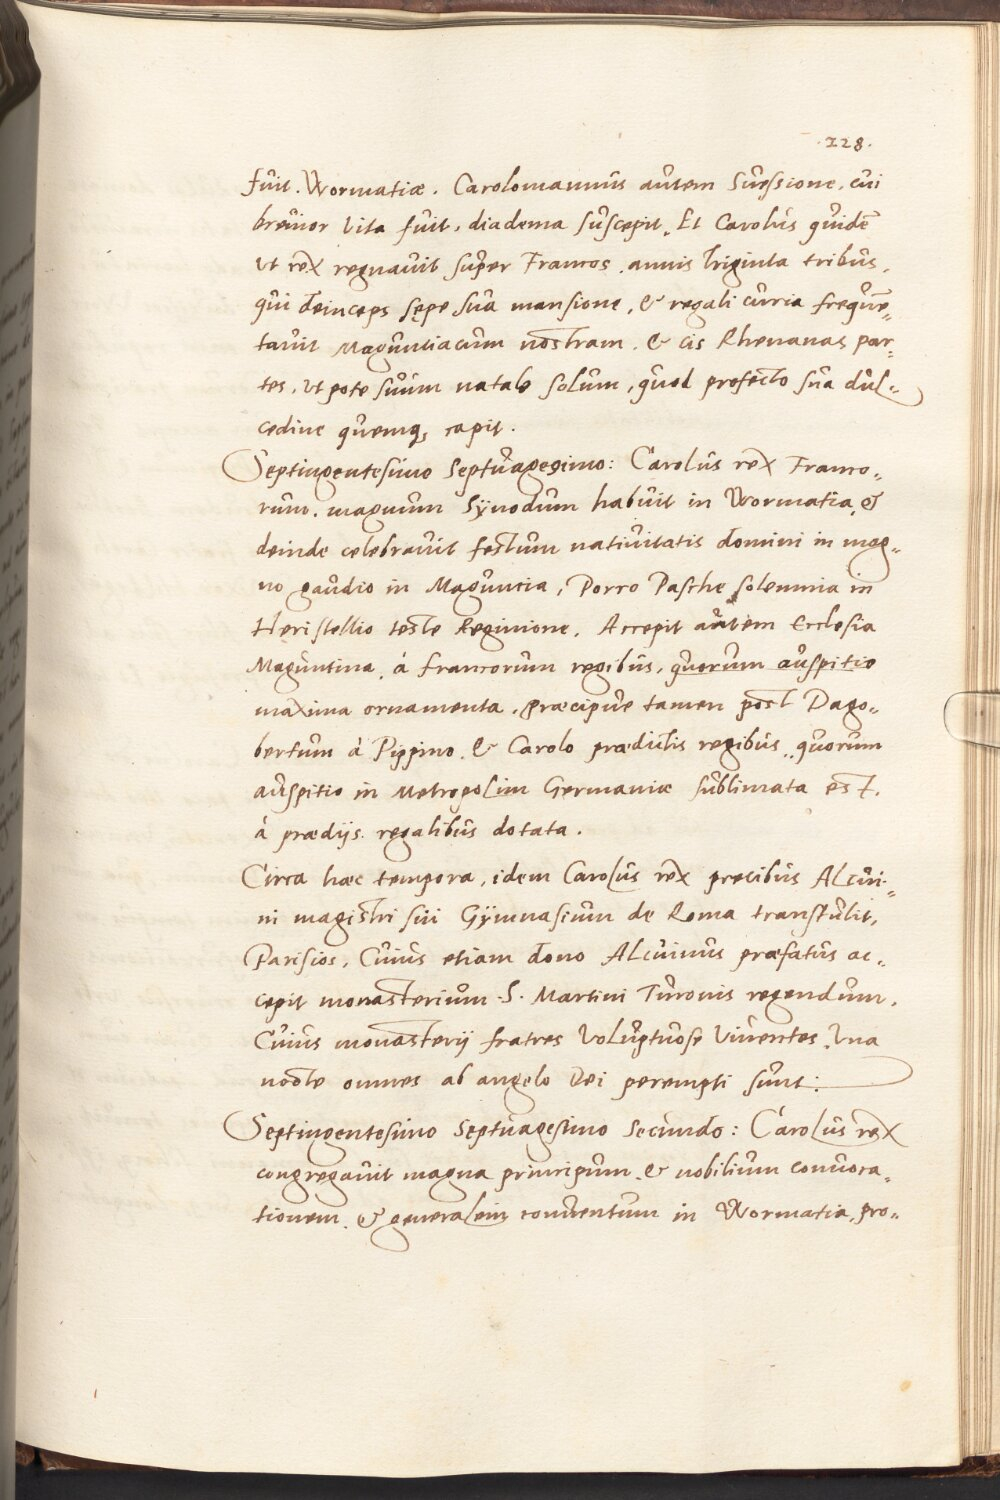 .228.
fuit. Wormatiæ. Carolomannus autem Suessione, cui
breuior vita fuit, diadema suscepit. Et Carolus quidē
ut rex regnauit super Francos, annis triginta tribus,
qui deinceps sępe sua mansione, & regali curia frequē=
tauit Maguntiacum nostram, & cis Rhenanas par=
tes, ut pote suum natale solum, quod profecto sua dul=
cedine quemq; capit.
Septingentesimo Septuagesimo: Carolus rex Franco=
rum. magnum Synodum habuit in Wormatia, &
deinde celebrauit festum natiuitatis domini in mag=
no gaudio in Maguntia, Porro Pasche solemnia in
Heristellio teste Reginione. Accepit autem Ecclesia
Maguntina, á francorum regibus, quorum auspitio
maxima ornamenta, præcipue tamen post Dago=
bertum á Pippino, & Carolo prædictis regibus, quorum
auspitio in Metropolim Germaniæ sublimata est,
á prædijs regalibus dotata.
Circa hæc tempora, idem Carolus rex precibus Alcui=
ni magistri sui Gymnasium de Roma transtulit,
Parisios, Cuius etiam dono Alcuinus præfatus ac=
cepit monasterium S. Martini Turonis regendum,
Cuius monasterij fratres voluptuose viuentes, vna
nocte omnes ab angelo Dei perempti sunt:
Septingentesimo Septuagesimo Secundo: Carolus rex
congregauit magna principum, & nobilium conuoca=
tionem, & generalem conuentum in Wormatia, pro=